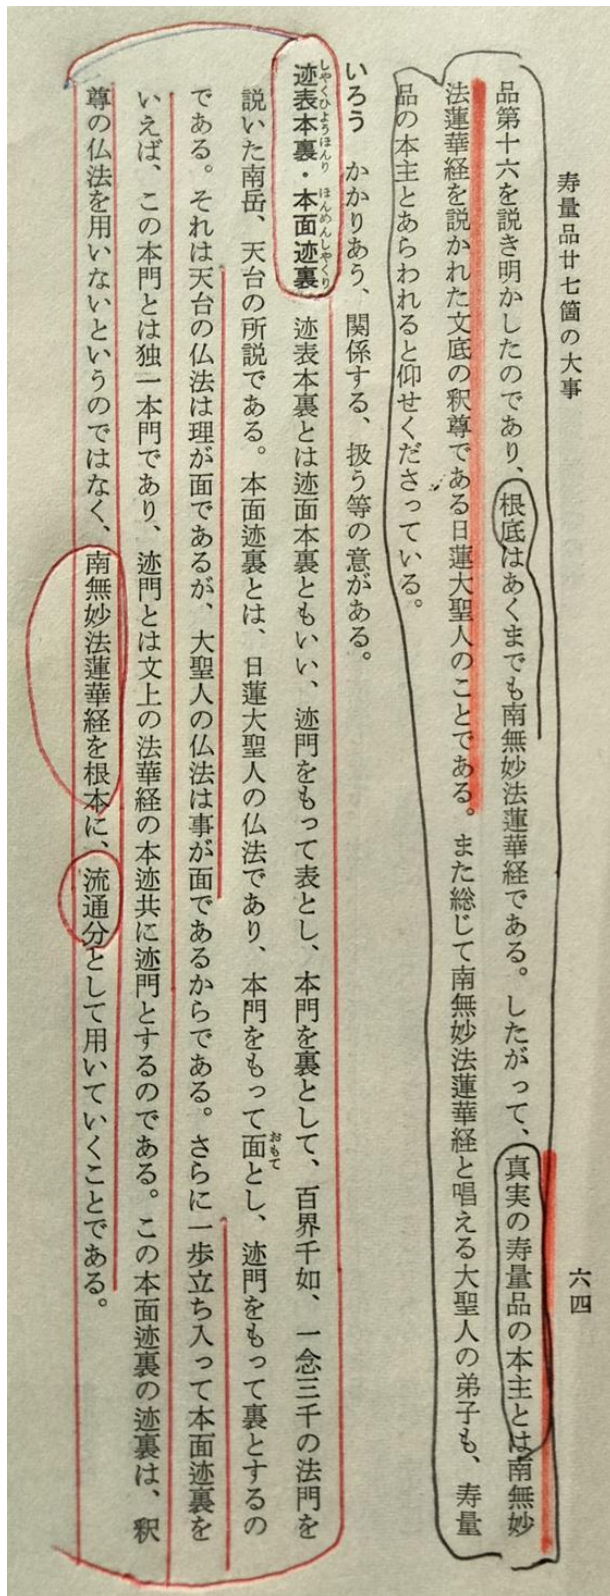 寿量品廿七箇の大事
六四
品第十六を説き明かしたのであり、根底はあくまでも南無妙法蓮華経である。したがって、真実の寿量品の本主とは南無妙
法蓮華経を説かれた文底の釈尊である日蓮大聖人のことである。また総じて南無妙法蓮華経と唱える大聖人の弟子も、寿量
品の本主とあらわれると仰せくださっている。
いろう　かかりあう、関係する、扱う等の意がある。
迹表本裏・本面迹裏　迹表本裏とは迹面本裏ともいい、迹門をもって表とし、本門を裏として、百界千如、一念三千の法門を
しゃくひょうほんり　ほんめんしゃくり
説いた南岳、天台の所説である。本面迹裏とは、日蓮大聖人の仏法であり、本門をもって面とし、迹門をもって裏とするの
おもて
である。それは天台の仏法は理が面であるが、大聖人の仏法は事が面であるからである。さらに一歩立ち入って本面迹裏を
いえば、この本門とは独一本門であり、迹門とは文上の法華経の本迹共に迹門とするのである。この本面迹裏の迹裏は、釈
尊の仏法を用いないというのではなく、南無妙法蓮華経を根本に、流通分として用いていくことである。